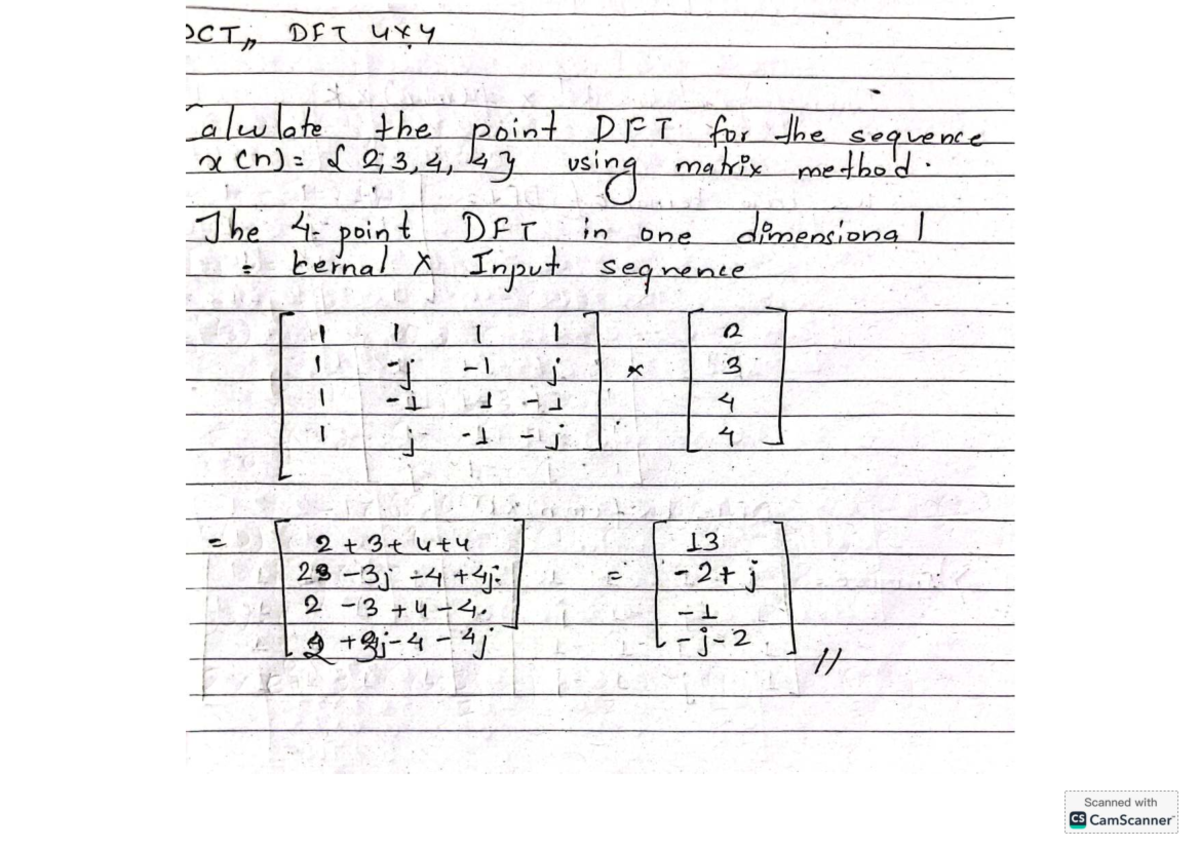 DCT,, DFT 4x4
Calwlate the point DFT for the seqvence
x(n) = { 2, 3, 4, 4 } using matrix method.
The 4- point DFT in one dimensional
= kernal x Input seqnence
[ 1 1 1 1 ] x [ 2 ]
[ 1 -j -1 j ] [ 3 ]
[ 1 -1 1 -1 ] [ 4 ]
[ 1 j -1 -j ] [ 4 ]
= [ 2 + 3 + 4 + 4 ] = [ 13 ]
[ 2 - 3j - 4 + 4j ] [ -2 + j ]
[ 2 - 3 + 4 - 4 ] [ -1 ]
[ 2 + 3j - 4 - 4j ] [ -j - 2 ] //
Scanned with
CS CamScanner